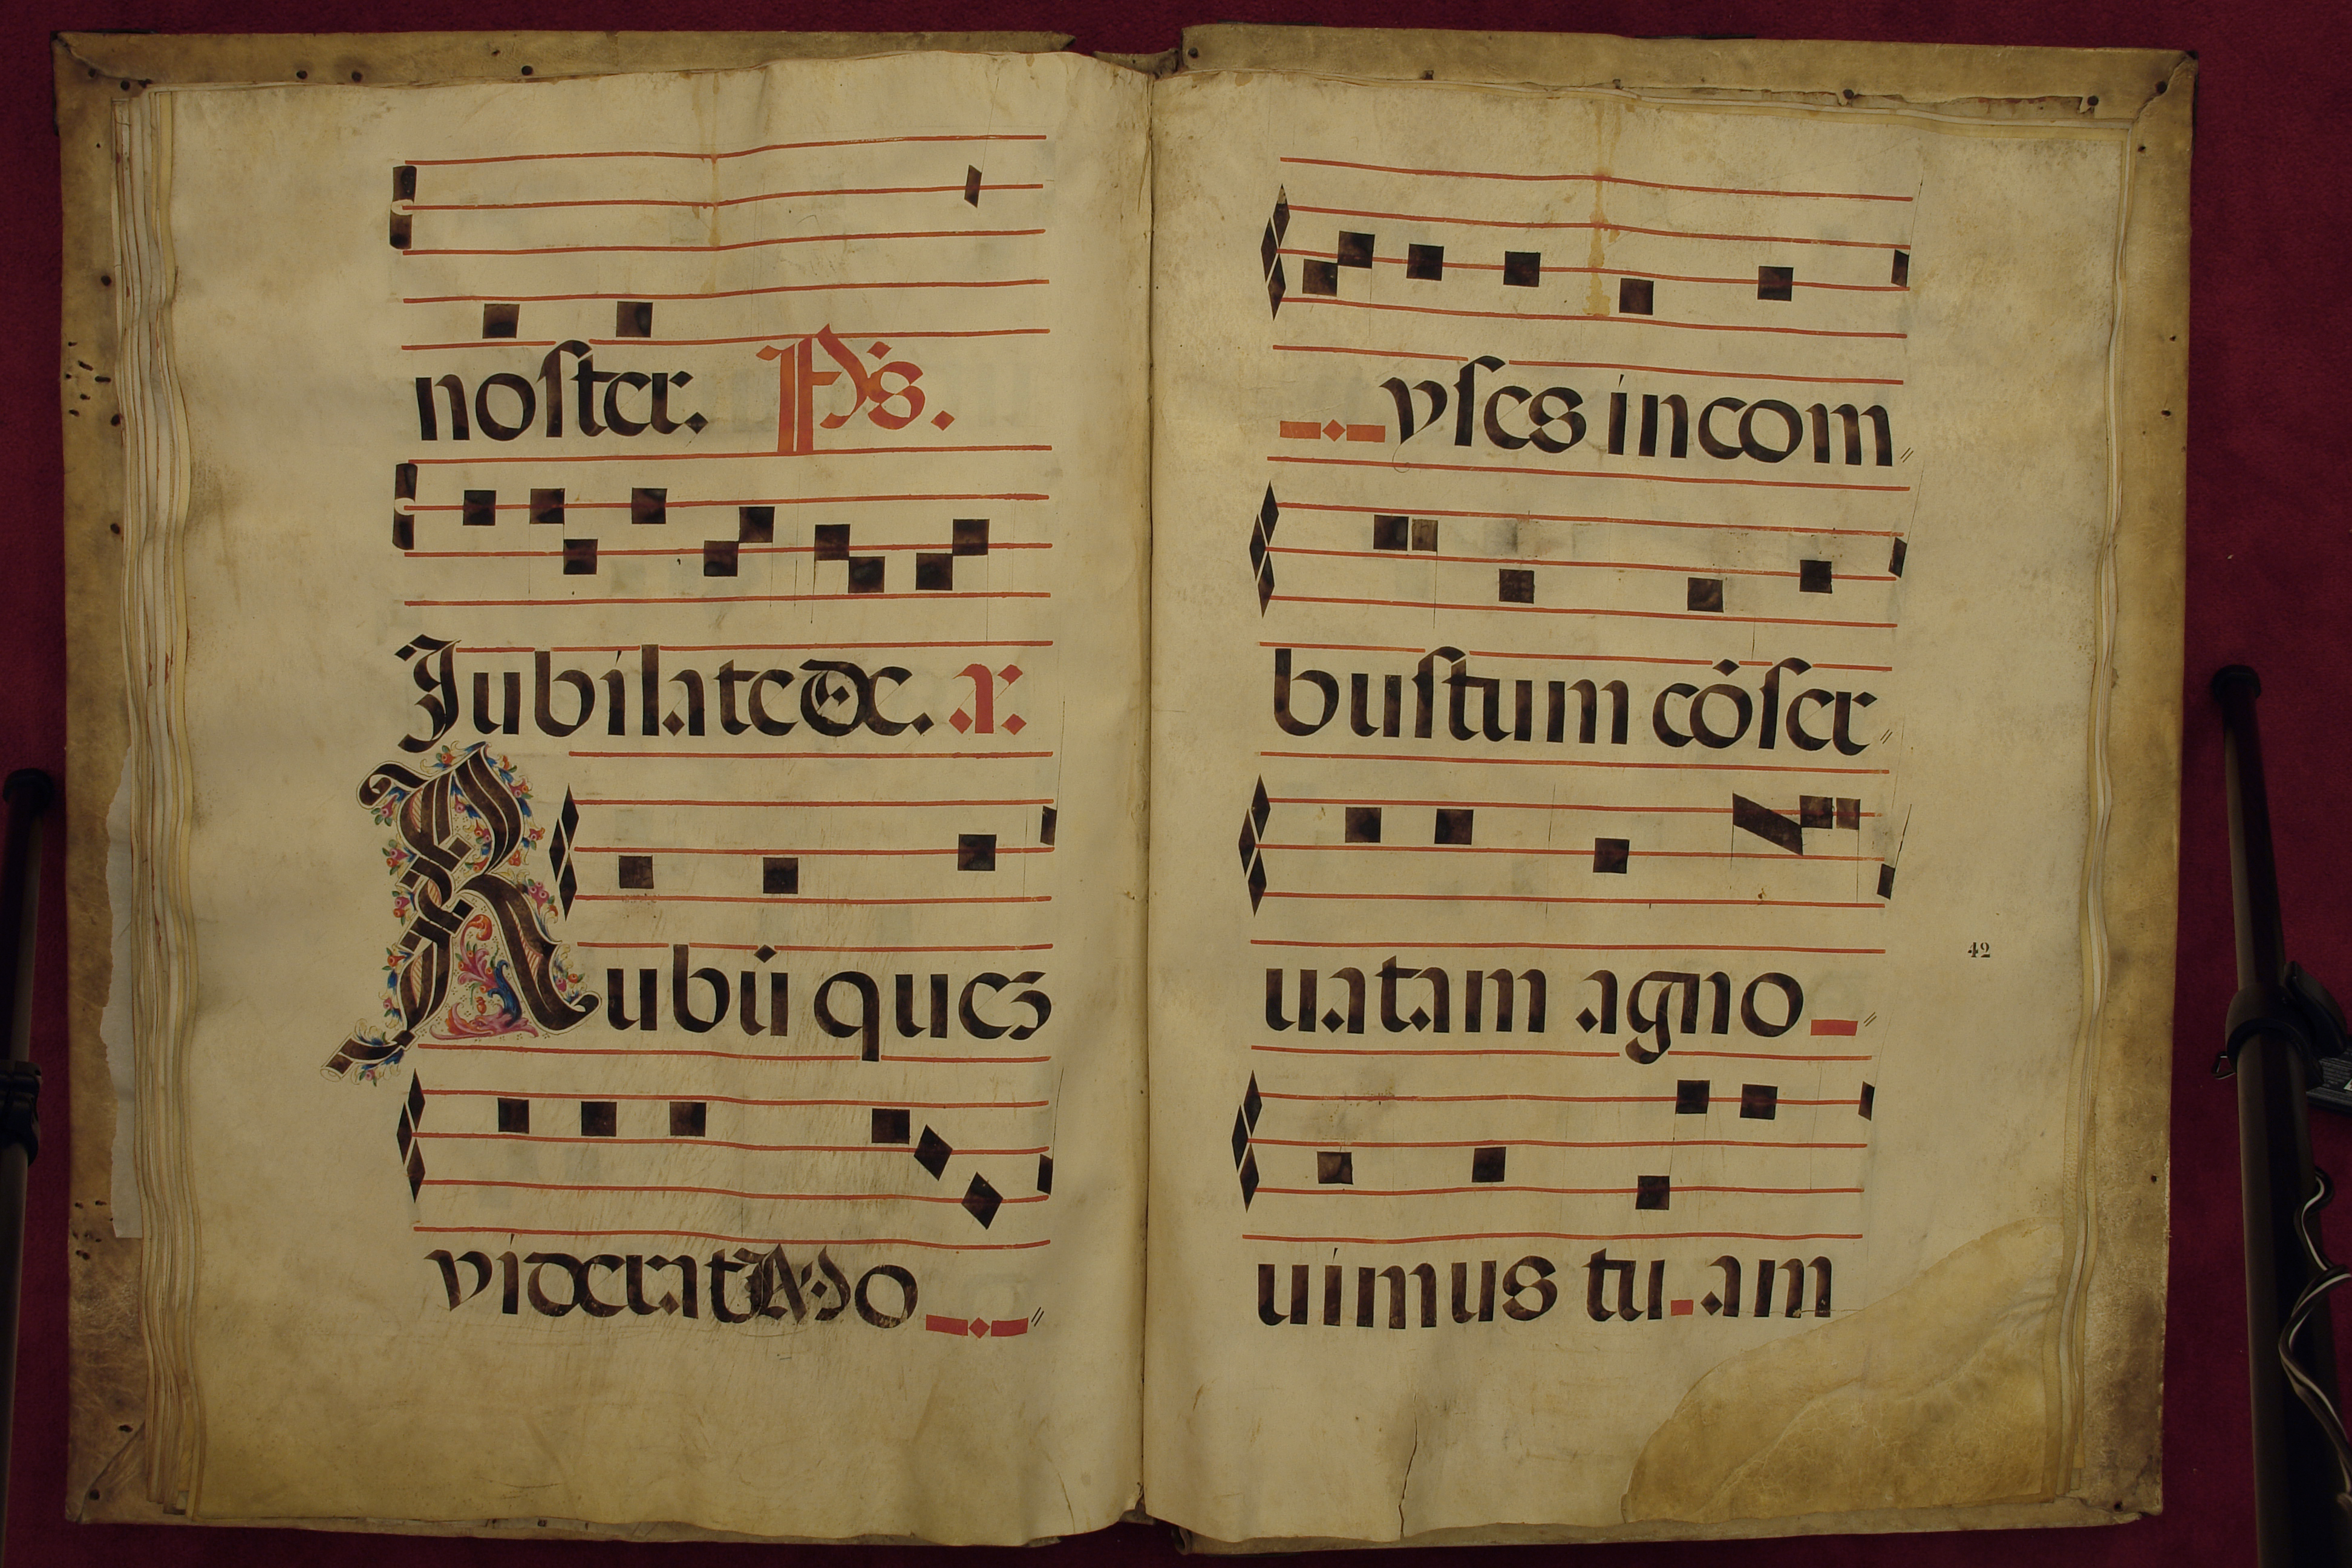 noſter. Ps.
Jubilate de. a.
Rubú quez
viderat Mo
yſes incom
buſtum cóſer
uatam agno
42
uimus tu am